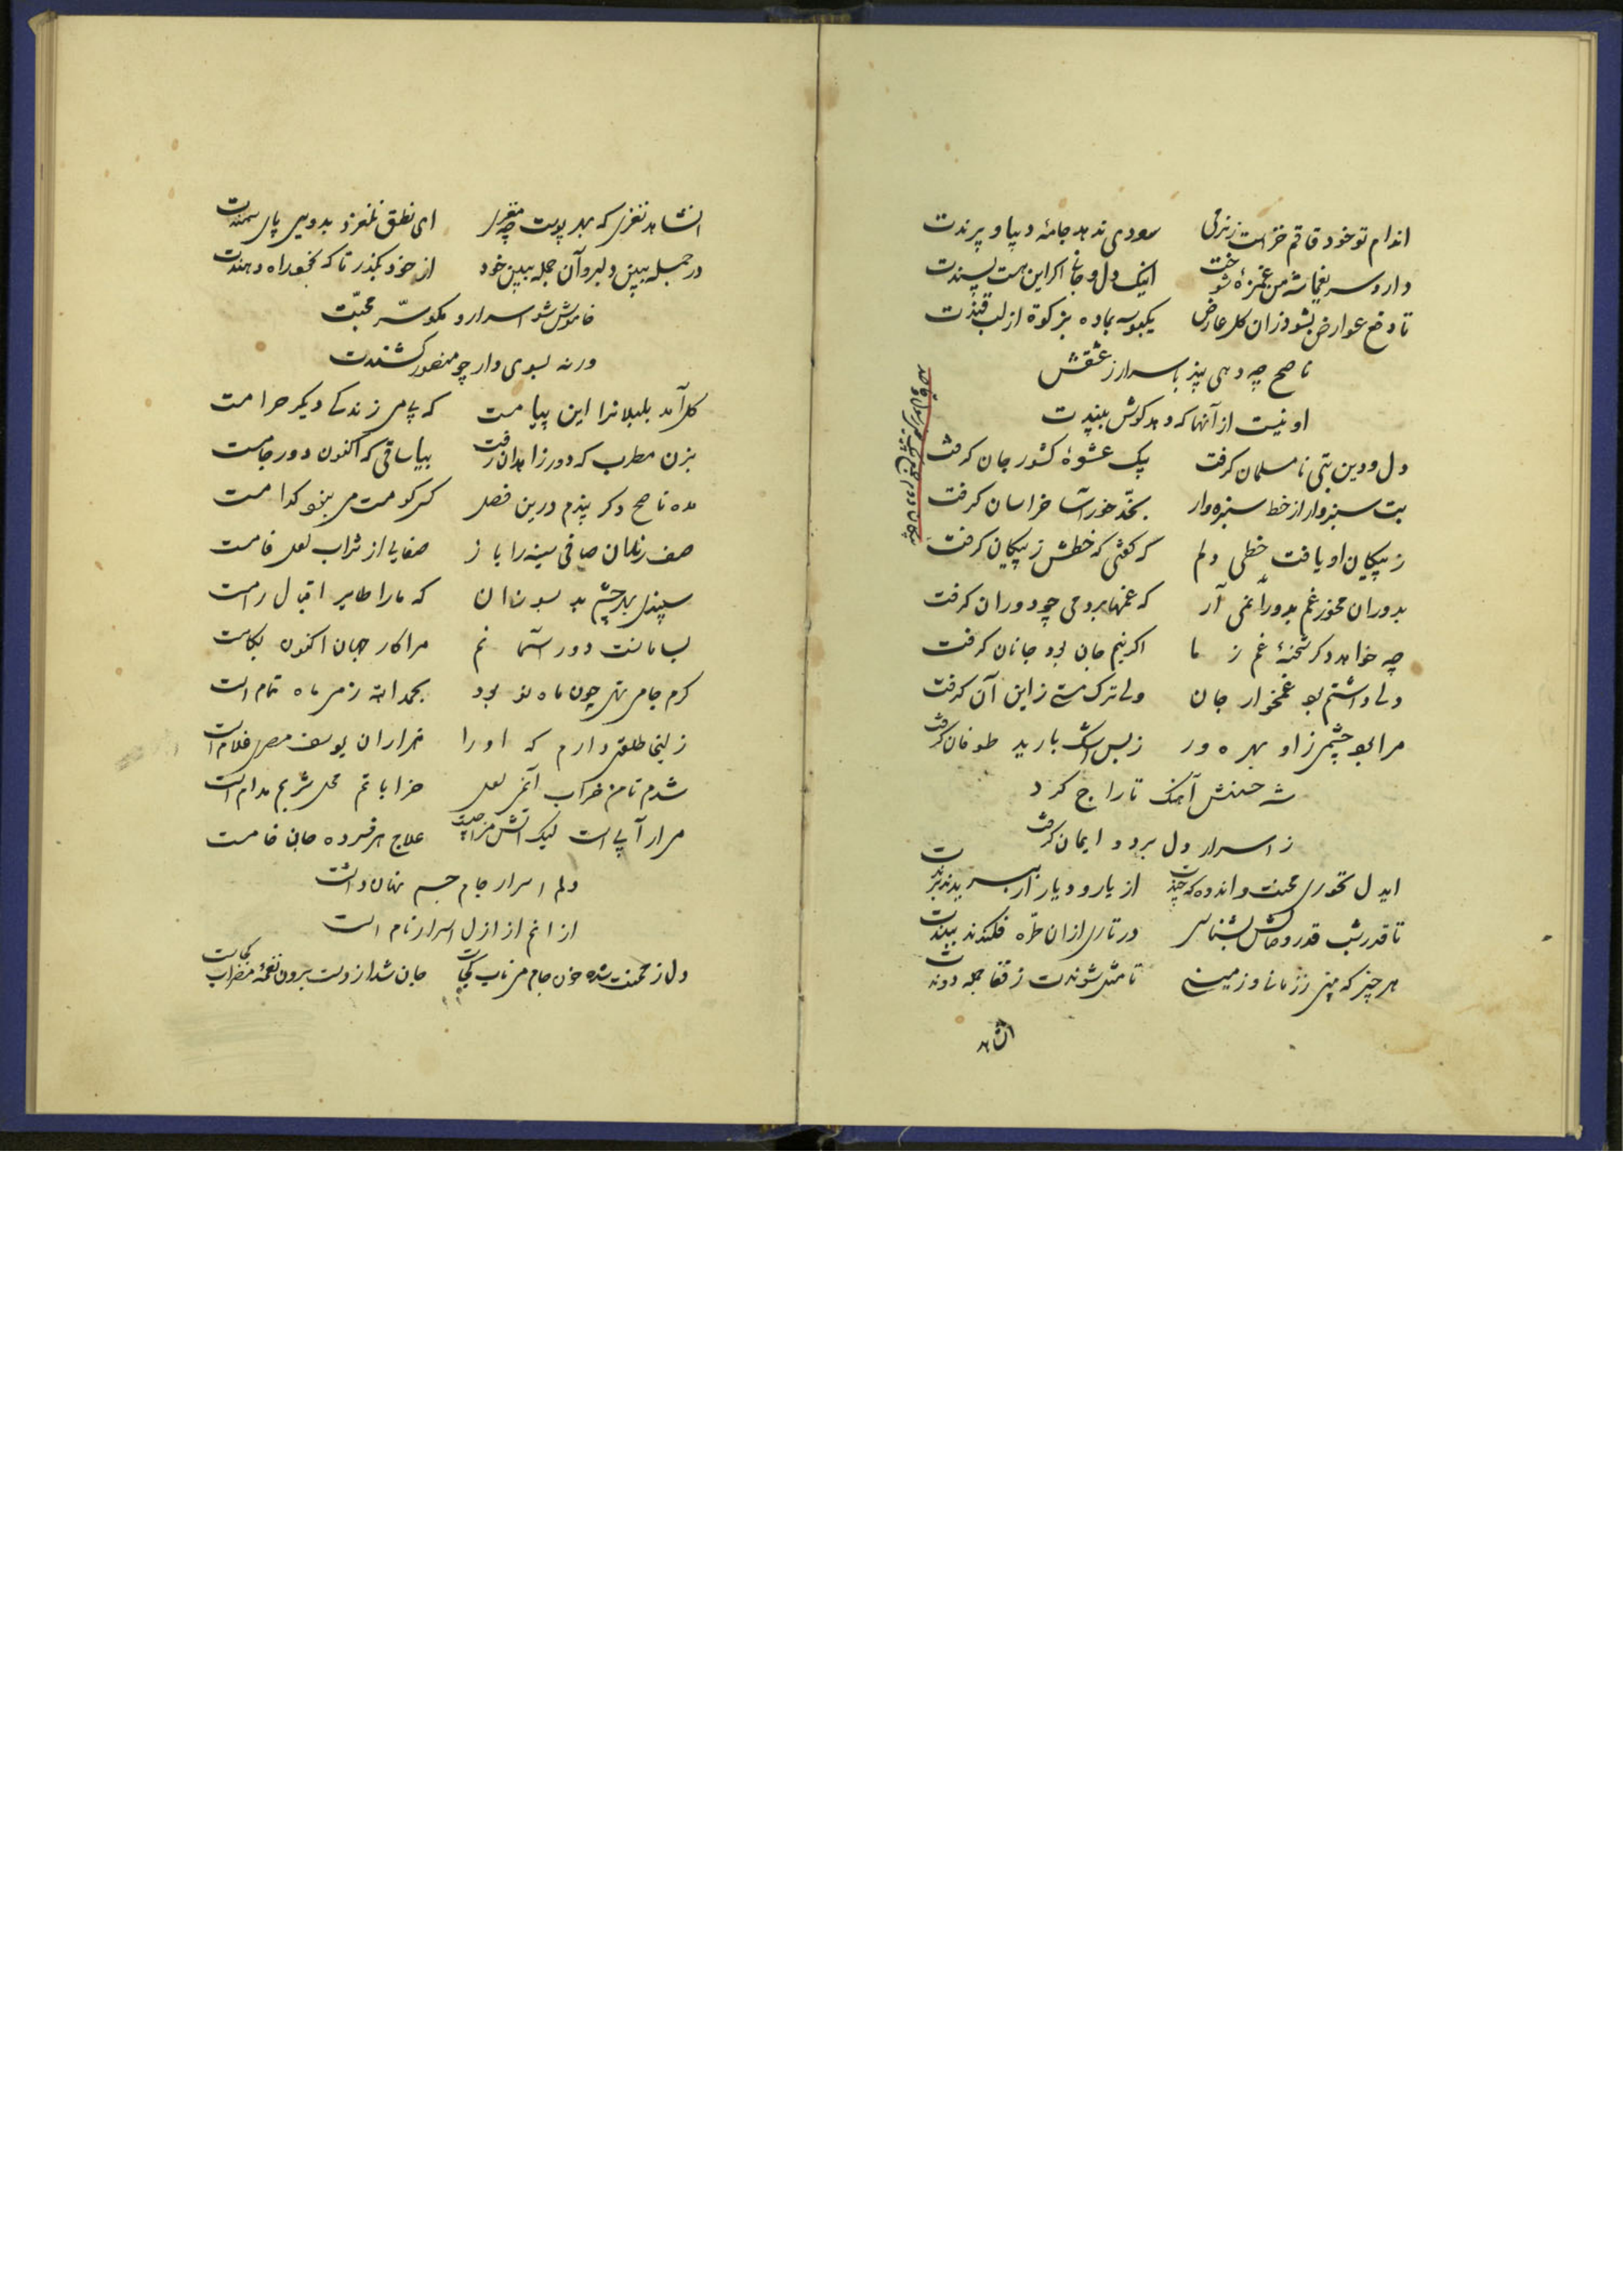 اندام تو خود قاقم خز است ز نرمی سودی ندهد جامهٔ دیبا و پرندت
دارد سر یغما شه من غمزهٔ شوخت اینک دل و جان اکر این هست پسندت
تا دفع عوارض بشود زان کل عارض یکبوسه بماده بزکوة از لب قندت
ناصح چه دهی پند باسرار ز عشقش
او نیست از آنها که دهد کوش بپندت
دل و دین بتی نامسلمان کرفت بیک عشوهٔ کشور جان کرفت
بت سبزوار از خط سبزه وار بخد خورآسا خراسان کرفت
ز پیکان او یافت خطی دلم که کفتی که خطش ز پیکان کرفت
بدوران مخور غم بدور آر می که غمها برد می چو دوران کرفت
چه خواهد دکر شحنهٔ غم ز ما اکر نیم جان بود جانان کرفت
دلی داشتم بود غمخوار جان ولی ترک مستی ز این آن کرفت
مرا بود چشمی ز او بهره ور ز بس اشک بارید طوفان کرفت
شه حسنش آهنک تاراج کرد
ز اسرار دل برد و ایمان کرفت
ایدل نخوری محنت و اندوه که چندت از یار و دیار ار ببریدند برندت
تا قدر شب قدر وصالش بشناسی در تاری ازان طره فکندند ببندت
هر چیز که بینی ز زمانی و زمینی تا مثل شوندت ز قفا جمله دوندت
انشاهد
انشاهد نغزی که بهر پوست چه مغزی ای نطق نلغزد بدویی پای سمندت
در جمله ببین دلبر و آن جمله ببین خود از خود بکذر تا که بخود راه دهندت
خاموش شو اسرار و مکو سرّ محبّت
ورنه بسوی دار چو منصور کشندت
کل آمد بلبلانرا این پیامست که بی می زندکی دیکر حرامست
بزن مطرب که دور زاهدان رفت بیا ساقی که اکنون دور جامست
مده ناصح دکر پندم درین فصل کسی کو مست می نبود کدامست
صف رندان صافی سینه را باز صفایی از شراب لعل فامست
سپندی بهر چشم بد بسوزان که ما را طایر اقبال رامست
بسامانست دور آسمانم مرا کار جهان اکنون بکامست
کرم جام تهی چون ماه نو بود بحمد الله ز می ماه تمام است
زلیخا طلعتی دارم که او را هزاران یوسف مصری غلام است
شدم تا من خراب آن می لعل خراباتم محل شربم مدام است
مرا رآیی است لیک آتش مزاجیست علاج هر فسرده جان خامست
دلم اسرار جام جم نهان داشت
از انم از ازل اسرار نام است
دل ز محنت شده خون جام می ناب کجاست جان شد از دست برون نغمهٔ مضراب کجاست